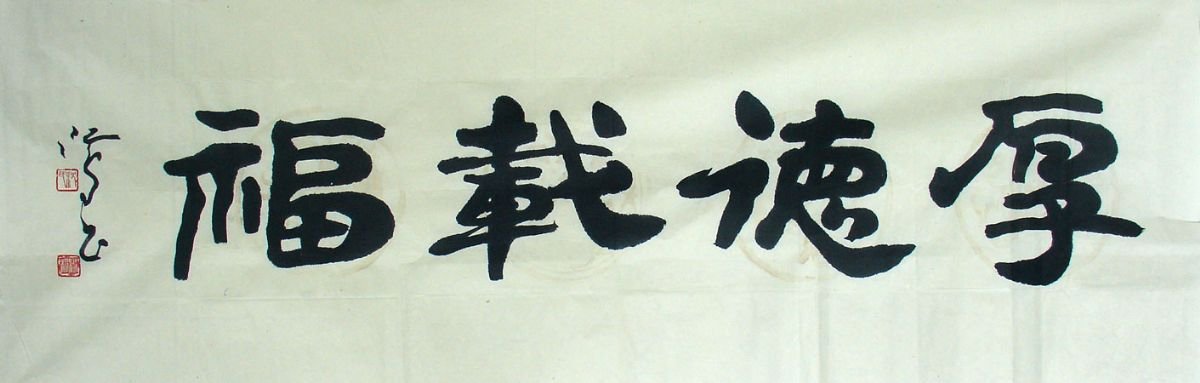 厚德載福